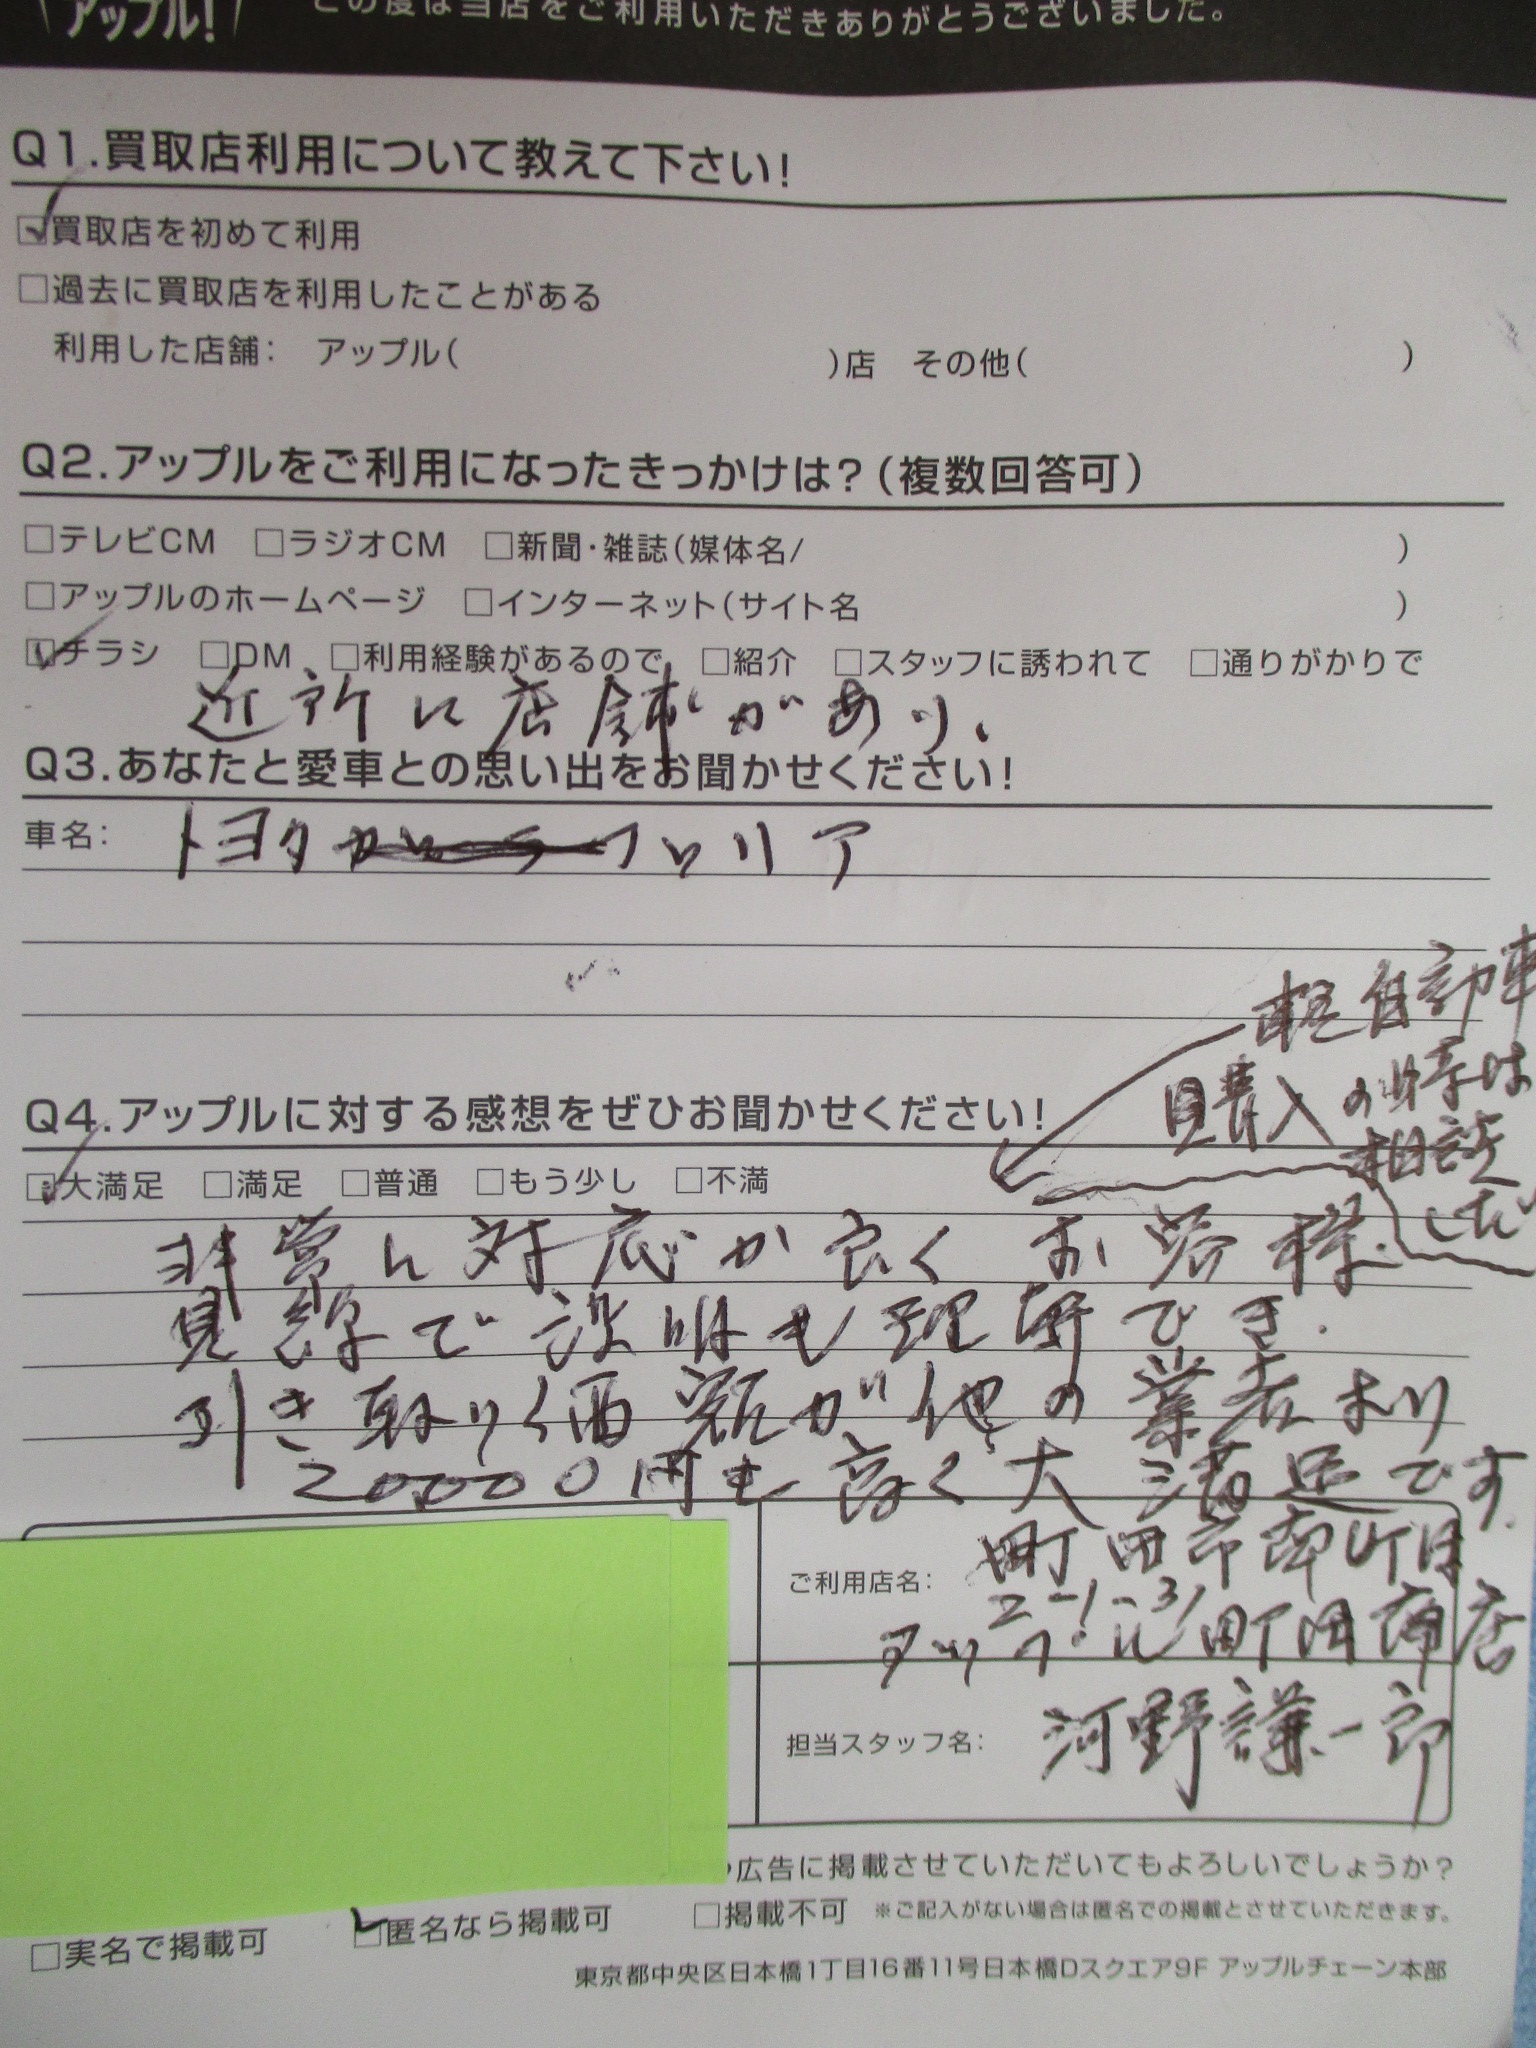 アップル!
この度は当店をご利用いただきありがとうございました。
Q1.買取店利用について教えて下さい!
買取店を初めて利用
□過去に買取店を利用したことがある
利用した店舗: アップル( )店 その他( )
Q2.アップルをご利用になったきっかけは?(複数回答可)
□テレビCM □ラジオCM □新聞・雑誌(媒体名/ )
□アップルのホームページ □インターネット(サイト名 )
チラシ □DM □利用経験があるので □紹介 □スタッフに誘われて □通りがかりで
近所に店舗があり、
Q3.あなたと愛車との思い出をお聞かせください!
車名: トヨタ アレリア
軽自動車
購入の時は
相談
した
Q4.アップルに対する感想をぜひお聞かせください!
大満足 □満足 □普通 □もう少し □不満
非常に対応が良くお客様
見線で説明も理解でき.
引き取り価額が他の業者より
20000円も高く大満足です.
ご利用店名: 町田市
アップル町田 店
担当スタッフ名: 河野謙一郎
広告に掲載させていただいてもよろしいでしょうか?
□実名で掲載可 □匿名なら掲載可 □掲載不可 ※ご記入がない場合は匿名での掲載とさせていただきます。
東京都中央区日本橋1丁目16番11号日本橋Dスクエア9F アップルチェーン本部